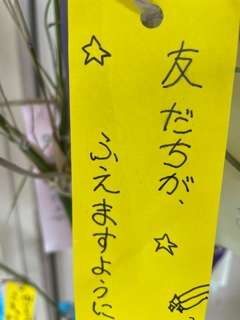 友だちが、
ふえますように